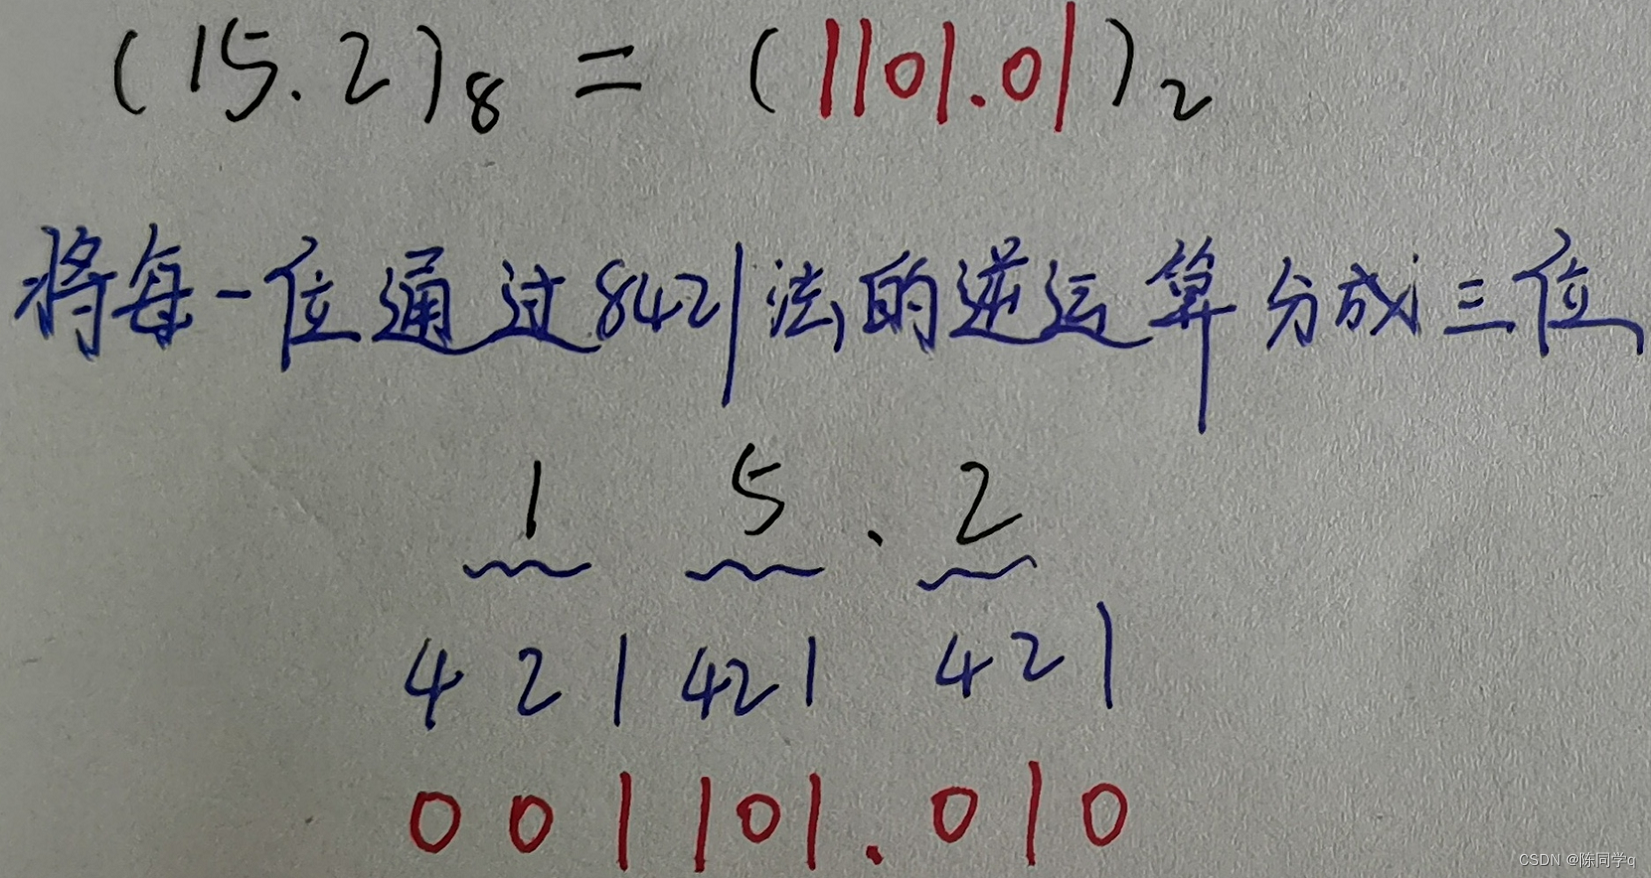 (15.2)8 = (1101.01)2
将每一位通过8421法的逆运算分成三位
1 5 . 2
4 2 1 421 4 2 1
0 0 1 101 . 0 1 0
CSDN @陈同学q